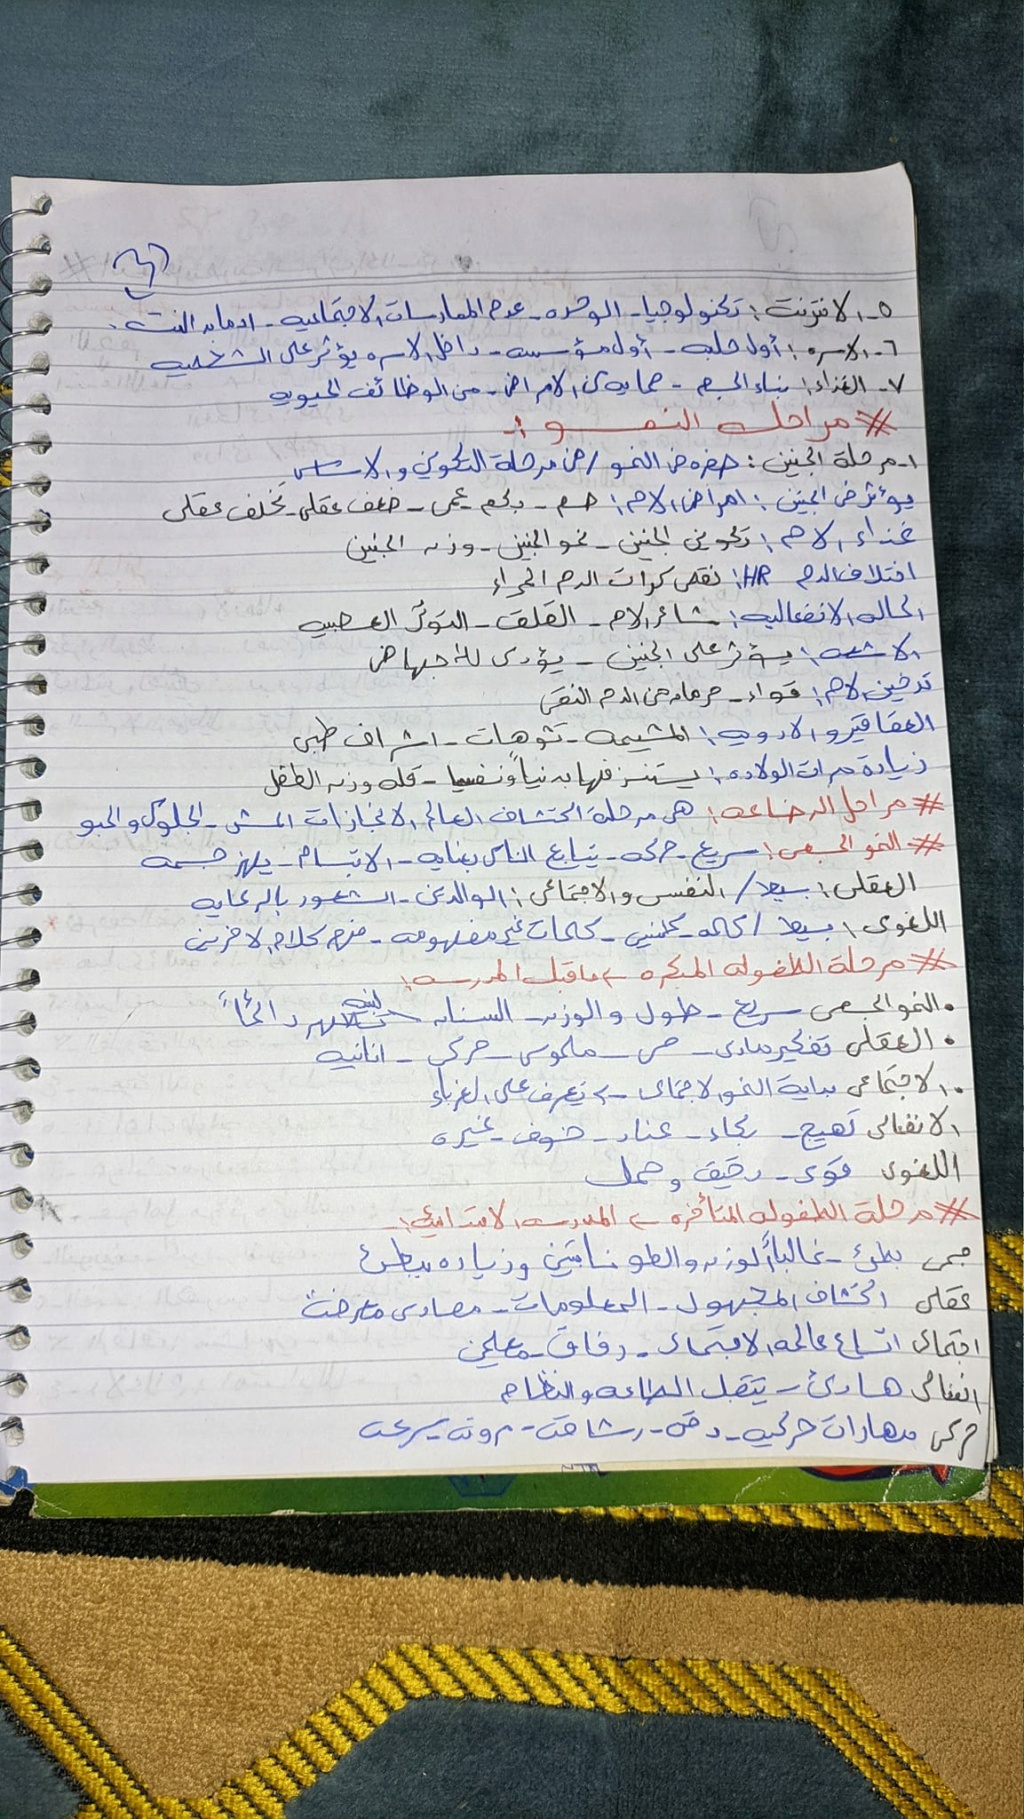 ٥- الانترنت: تكنولوجيا - الوحده - عدم الممارسات الاجتماعيه - ادمان النت.
٦- الاسره: أول حلبه - أول مؤسسه - داخل الاسره يؤثر على الشخصيه
٧- الغذاء: بناء الجسم - حمايه من الامراض - من الوظائف الحيويه
# مراحل النمو :-
١- مرحلة الجنين: في النمو / من مرحلة التكوين والاساس
يؤثر في الجنين: امراض الام: صم - بكم - عمى - ضعف عقلى - تخلف عقلى
غذاء الام: تكوين الجنين - نمو الجنين - وزن الجنين
اختلاف الدم HR: نقص كرات الدم الحمراء
الحاله الانفعاليه: مشاعر الام - القلق - التوتر العصبيه
الاشعه: يؤثر على الجنين - يؤدى للاجهاض
تدخين الام: - حرمان من الدم النقى
العقاقير والادويه: المشيمه - تشوهات - اشراف طبى
زيادة مرات الولاده: يستنزفها بدنياً ونفسيا - قله وزن الطفل
# مراحل الرضاعه: هى مرحلة اكتشاف العالم الانجازات المشى - الجلوس والحبو
# النمو الجسمى: سريع - حركه - يتابع الناس بعنايه - الابتسام - يهز جسمه
العقلى: بسيط / النفسى والاجتماعى: الوالدين - الشعور بالرعايه
اللغوى: بسيط / كلمه - كلمتين - كلمات غير مفهومه - فهم كلام الاخرين
# مرحلة الطفوله المبكره ← ماقبل المدرسه:
• النمو الجسمى سريع - طول والوزن - السنان دائماً
• العقلى تفكير مادى - حسى - ملموس - حركى - انانيه
• الاجتماعى بداية النمو الاجتماعى - يتعرف على الغرباء
الانفعالى تهيج - بكاء - عناد - خوف - غيره
اللغوى قوى - دقيق وجمل
# مرحلة الطفوله المتأخره ← المدرسه الابتدائيه:
جسمى بطئ - غالباً الوزن والطول وزياده ببطئ
عقلى اكتشاف المجهول - المعلومات - مصادر
اجتماعى اتساع عالمه الاجتماعى - رفاق - معلمين
انفعالى هادئ - يتقبل الطاعه والنظام
حركى مهارات حركيه - دقه - رشاقه - مرونه - سرعه